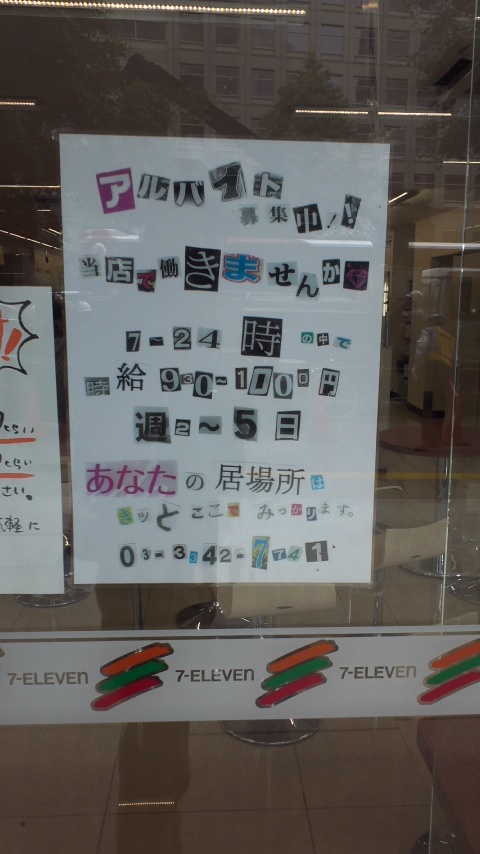 アルバイト
募集中!!
当店で働きませんか
7~24時の中で
時給930~1100円
週2~5日
あなたの居場所は
きッとここでみつかります。
03-3342-7741
くらい
くらい
さい。
軽に
7-ELEVEn 7-ELEVEn 7-ELEVEn